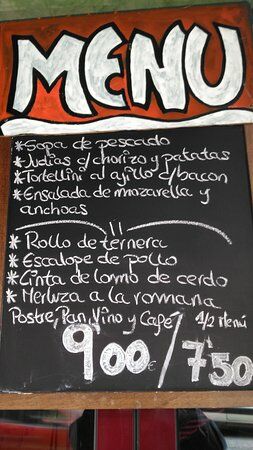 MENU
*Sopa de pescado
*Judias c/chorizo y patatas
*Tortellini al ajillo c/bacon
*Ensalada de mozarella y
anchoas
*Rollo de ternera
*Escalope de pollo
*Cinta de lomo de cerdo
*Merluza a la romana
Postre, Pan, Vino y Café 1/2 Menú
9,00€/7,50